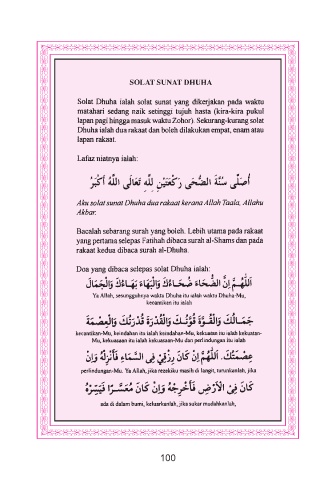 SOLAT SUNAT DHUHA
Solat Dhuha ialah solat sunat yang dikerjakan pada waktu
matahari sedang naik setinggi tujuh hasta (kira-kira pukul
lapan pagi hingga masuk waktu Zohor). Sekurang-kurang solat
Dhuha ialah dua rakaat dan boleh dilakukan empat, enam atau
lapan rakaat.
Lafaz niatnya ialah:
أُصَلِّى سُنَّةَ الضُّحَى رَكْعَتَيْنِ لِلَّهِ تَعَالَى اللَّهُ أَكْبَرُ
Aku solat sunat Dhuha dua rakaat kerana Allah Taala, Allahu
Akbar.
Bacalah sebarang surah yang boleh. Lebih utama pada rakaat
yang pertama selepas Fatihah dibaca surah al-Shams dan pada
rakaat kedua dibaca surah al-Dhuha.
Doa yang dibaca selepas solat Dhuha ialah:
اَللَّهُمَّ إِنَّ الضُّحَاءَ ضُحَاءُكَ وَالْبَهَاءَ بَهَاءُكَ وَالْجَمَالَ
Ya Allah, sesungguhnya waktu Dhuha itu ialah waktu Dhuha-Mu,
kecantikan itu ialah
جَمَالُكَ وَالْقُوَّةَ قُوَّتُكَ وَالْقُدْرَةَ قُدْرَتُكَ وَالْعِصْمَةَ
kecantikan-Mu, keindahan itu ialah keindahan-Mu, kekuatan itu ialah kekuatan-
Mu, kekuasaan itu ialah kekuasaan-Mu dan perlindungan itu ialah
عِصْمَتُكَ. اَللَّهُمَّ إِنْ كَانَ رِزْقِيْ فِى السَّمَاءِ فَأَنْزِلْهُ وَإِنْ
perlindungan-Mu. Ya Allah, jika rezekiku masih di langit, turunkanlah, jika
كَانَ فِيْ الْأَرْضِ فَأَخْرِجْهُ وَإِنْ كَانَ مُعَسَّرًا فَيَسِّرْهُ
ada di dalam bumi, keluarkanlah, jika sukar mudahkanlah,
100